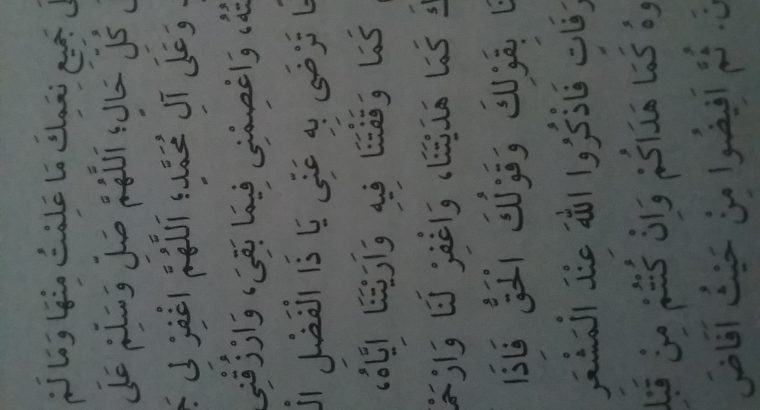 جَمِيعِ نِعَمِكَ مَا عَلِمْتُ مِنْهَا وَمَا لَمْ
كُلِّ حَالٍ؛ اَللَّهُمَّ صَلِّ وَسَلِّمْ عَلَى
وَعَلَى آلِ مُحَمَّدٍ؛ اَللَّهُمَّ اغْفِرْ لِى
تُهُ، وَاعْصِمْنِى فِيمَا بَقِىَ، وَارْزُقْنِى
تَرْضَى بِهِ عَنِّى يَا ذَا الْفَضْلِ
كَمَا وَقَفْتَنَا فِيهِ وَاَرَيْتَنَا اِيَّاهُ،
كَ كَمَا هَدَيْتَنَا، وَاغْفِرْ لَنَا وَارْحَمْ
نَا بِقَوْلِكَ وَقَوْلُكَ الْحَقُّ فَاِذَا
رَفَاتٍ فَاذْكُرُوا اللهَ عِنْدَ الْمَشْعَرِ
وهُ كَمَا هَدَاكُمْ وَاِنْ كُنْتُمْ مِنْ قَبْلِ
نَ. ثُمَّ اَفِيضُوا مِنْ حَيْثُ اَفَاضَ